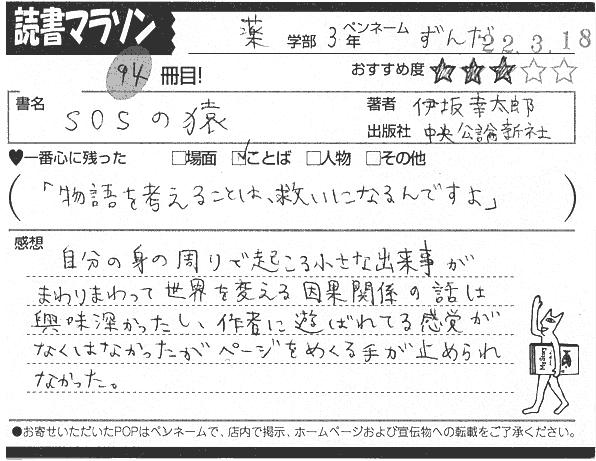 読書マラソン
薬 学部 3年 ペンネーム ずんだ 22.3.18
94 冊目! おすすめ度 ★★★☆☆
書名 SOSの猿 著者 伊坂幸太郎
出版社 中央公論新社
♥一番心に残った □場面 ☑ことば □人物 □その他
(「物語を考えることは、救いになるんですよ」)
感想
自分の身の周りで起こる小さな出来事が
まわりまわって世界を変える因果関係の話は
興味深かったし、作者に遊ばれてる感覚が
なくはなかったがページをめくる手が止められ
なかった。
My Story
●お寄せいただいたPOPはペンネームで、店内で掲示、ホームページおよび宣伝物への転載をご了承ください。